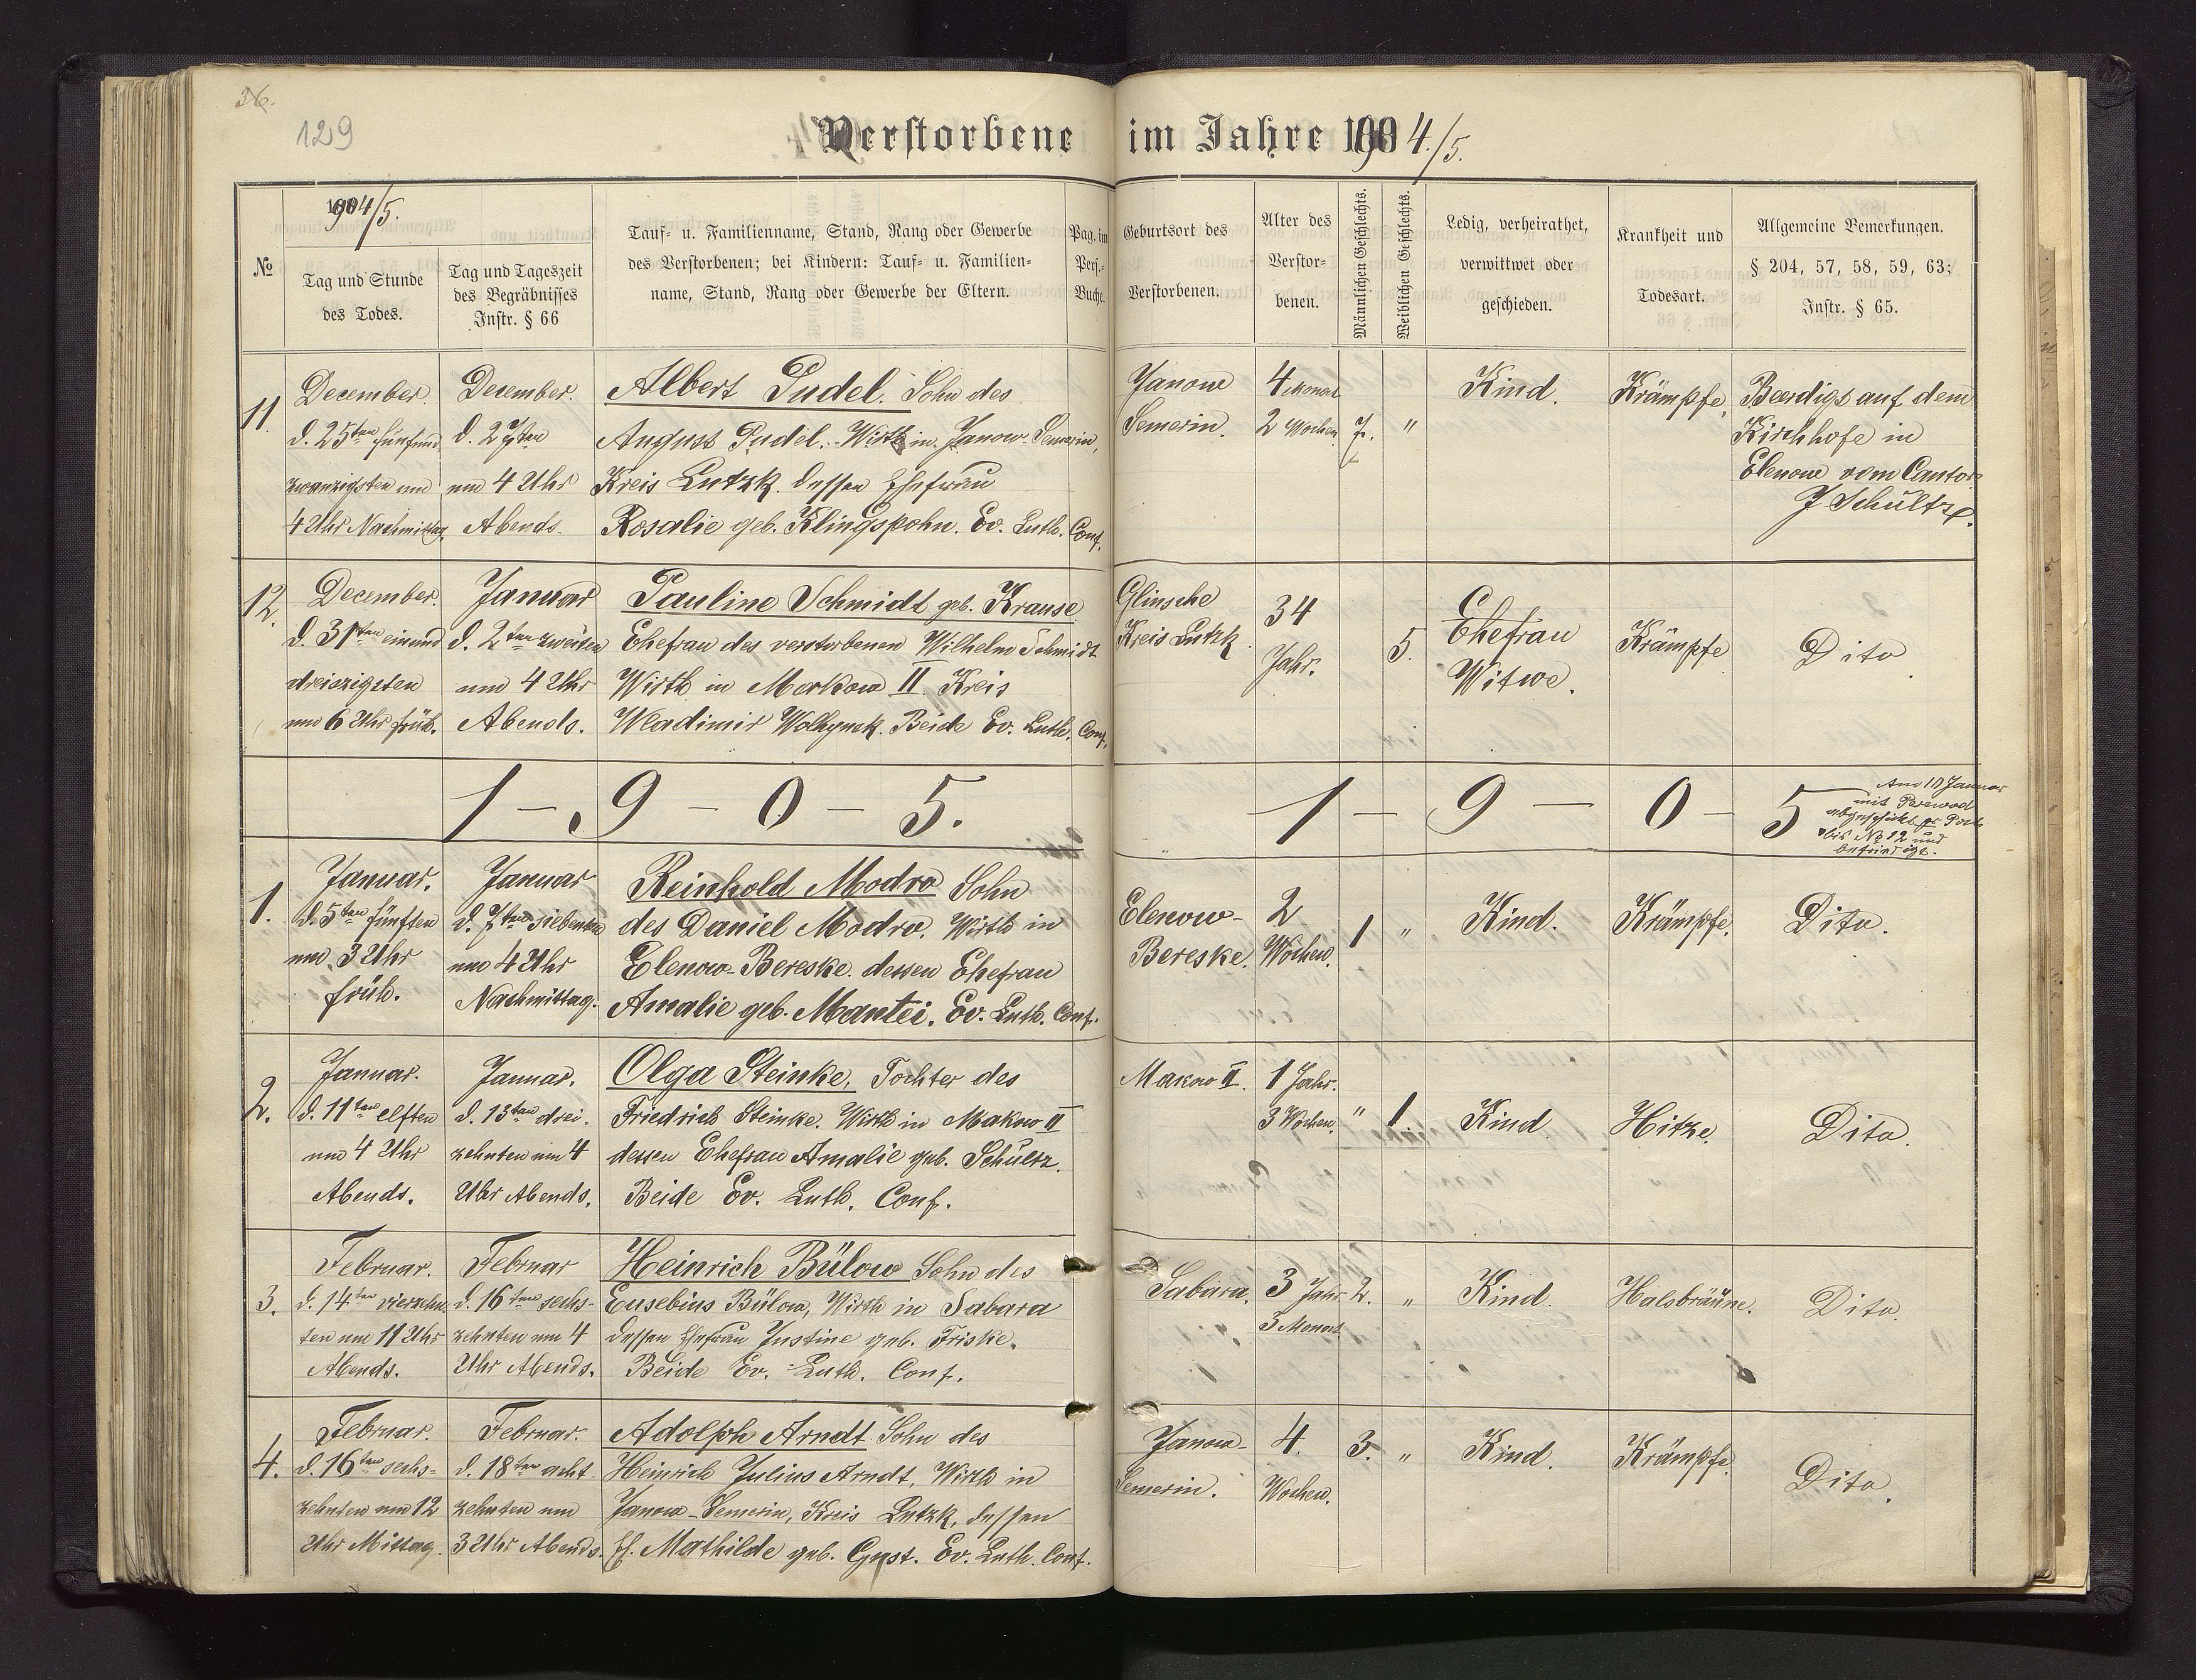 36.
129
Verstorbene im Jahre 1904./5.
1904/5.
№
Tag und Stunde
des Todes.
Tag und Tageszeit
des Begräbnisses
Instr. § 66
Tauf- u. Familienname, Stand, Rang oder Gewerbe
des Verstorbenen; bei Kindern: Tauf- u. Familien-
name, Stand, Rang oder Gewerbe der Eltern.
Pag. im
Pers.-
Buche.
Geburtsort des
Verstorbenen.
Alter des
Verstor-
benen.
Männlichen Geschlechts.
Weiblichen Geschlechts.
Ledig, verheirathet,
verwittwet oder
geschieden.
Krankheit und
Todesart.
Allgemeine Bemerkungen.
§ 204, 57, 58, 59, 63;
Instr. § 65.
11.
December.
d. 25ten fünfund
zwanzigsten um
4 Uhr Nachmittag.
December.
d. 27ten
um 4 Uhr
Abends.
Albert Pudel. Sohn des
August Pudel. Wirth in Janow-Semerin,
Kreis Lutzk. dessen Ehefrau
Rosalie geb. Klingspohn. Ev. Luth. Conf.
Janow
Semerin.
4 Monat
2 Wochen
7.
"
Kind.
Krämpfe.
Beerdigt auf dem
Kirchhofe in
Elenow vom Cantor
J Schültz.
12.
December.
d. 31ten einund
dreiszigsten
um 6 Uhr früh.
Januar
d. 2ten zweiten
um 4 Uhr
Abends.
Pauline Schmidt geb. Krause
Ehefrau des verstorbenen Wilhelm Schmidt
Wirth in Markow II. Kreis
Wladimir Wolhynsk. Beide Ev. Luth. Conf.
Glinsche
Kreis Lutzk.
34
Jahr.
5.
Ehefrau
Witwe.
Krämpfe
Dito.
1 – 9 – 0 – 5.
1 – 9 – 0 – 5
Januar
mit Perewod
abgeschickt pr Post
bis № 12 und
1.
Januar.
d. 5ten fünften
um 3 Uhr
früh.
Januar
d. 7ten siebenten
um 4 Uhr
Nachmittag.
Reinhold Modro Sohn
des Daniel Modro. Wirth in
Elenow-Bereske. dessen Ehefrau
Amalie geb. Mantei. Ev. Luth. Conf.
Elenow-
Bereske.
2
Wochen.
1
"
Kind.
Krämpfe.
Dito.
2.
Januar.
d. 11ten elften
um 4 Uhr
Abends.
Januar.
d. 13ten drei-
zehnten um 4
Uhr Abends.
Olga Steinke, Tochter des
Friedrich Steinke. Wirth in Makow II
dessen Ehefrau Amalie geb. Schültz.
Beide Ev. Luth. Conf.
Makow II.
1 Jahr.
3 Wochen.
"
1.
Kind.
Hitze.
Dito.
3.
Februar.
d. 14ten vierzehn-
ten um 11 Uhr
Abends.
Februar
d. 16ten sechs-
zehnten um 4
Uhr Abends.
Heinrich Bülow Sohn des
Eusebius Bülow, Wirth in Sabara
dessen Ehefrau Justine geb. Friske.
Beide Ev. Luth. Conf.
Sabara.
3 Jahr
5 Monat
2.
"
Kind.
Halsbräüne.
Dito.
4.
Februar.
d. 16ten sechs-
zehnten um 12
Uhr Mittag.
Februar.
d. 18ten acht
zehnten um
3 Uhr Abends.
Adolph Arndt Sohn des
Heinrich Julius Arndt, Wirth in
Janow-Semerin, Kreis Lutzk, dessen
Ef. Mathilde geb. Gust. Ev. Luth. Conf.
Janow-
Semerin.
4.
Wochen.
3.
"
Kind.
Krämpfe.
Dito.